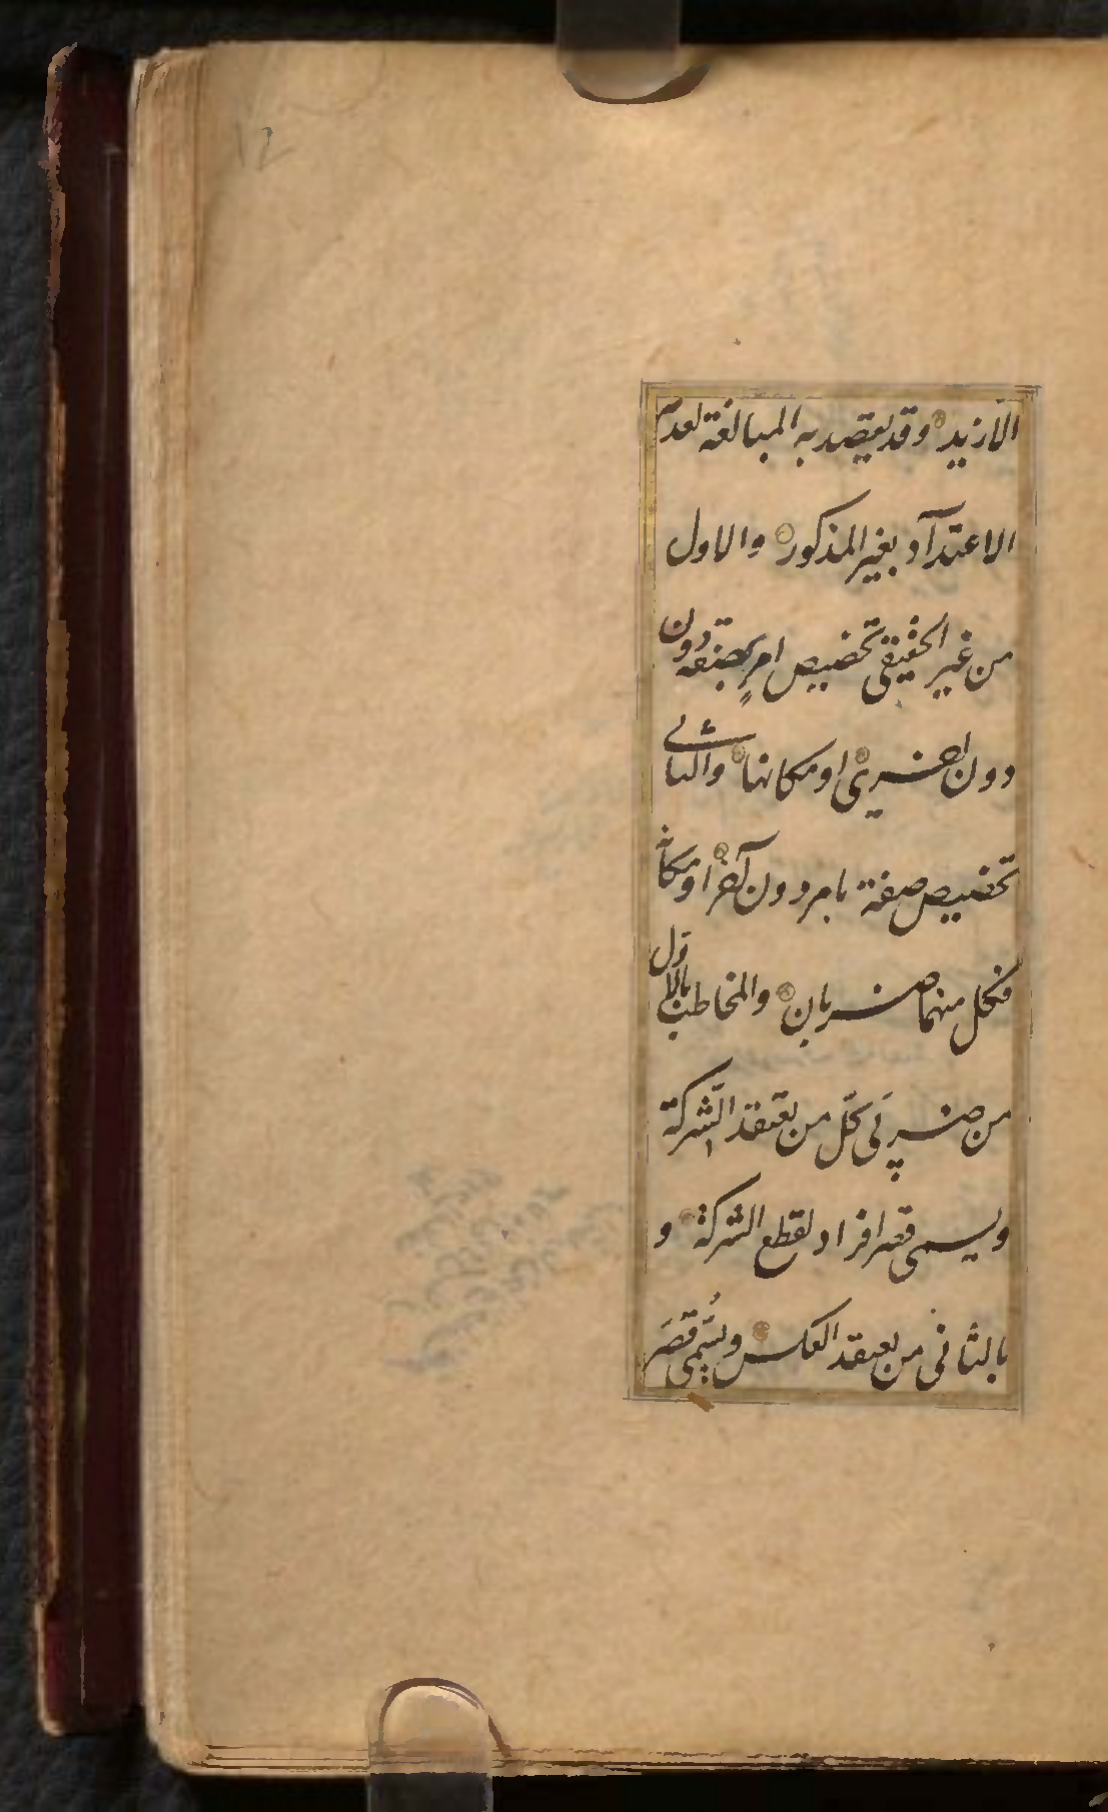 12
الّا زيد وقد يقصد به المبالغة لعدم
الاعتداد بغير المذكور والاول
من غير الحقيقى تخصيص امرٍ بصفة دون
دون اخرى او مكانها والثانى
تخصيص صفة بامر دون آخر او مكانه
فكل منهما ضربان والمخاطب بالاول
من ضربَى كلّ من يعتقد الشّركة
ويسمى قصر افراد لقطع الشركة و
بالثانى من يعتقد العكس ويُسَمّى قصَر